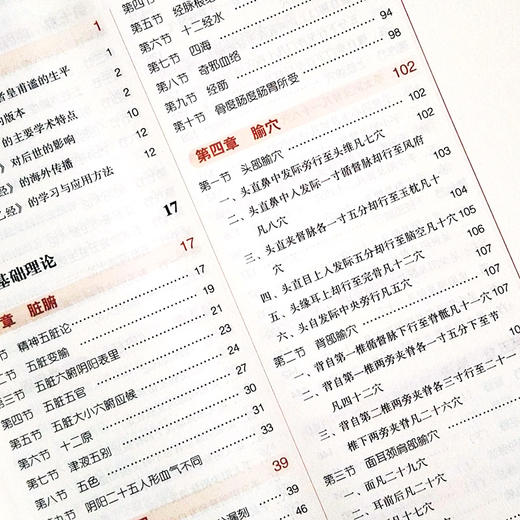 1
著皇甫谧的生平
1
版本
2
的主要学术特点
2
对后世的影响
10
经》的海外传播
12
经》的学习与应用方法
12
17
基础理论
章 脏腑
17
精神五脏论
17
二节 五脏变腧
19
第三节 五脏六腑阴阳表里
21
第四节 五脏五官
23
第五节 五脏大小六腑应候
24
第六节 十二原
27
第七节 津液五别
30
第八节 五色
31
第九节 阴阳二十五人形血气不同
33
39
39
46
第四节
第五节 经脉根结
第六节 十二经水
88
第七节 四海
94
第八节 奇邪血络
98
第九节 经筋
第十节 骨度肠度肠胃所受
102
第四章 腧穴
102
第一节 头部腧穴
102
一、头直鼻中发际旁行至头维凡七穴
102
二、头直鼻中入发际一寸循督脉却行至风府
凡八穴
103
三、头直夹督脉各一寸五分却行至玉枕凡十
穴
104
四、头直目上入发际五分却行至脑空凡十穴
105
五、头缘耳上却行至完骨凡十二穴
106
六、头自发际中央旁行凡五穴
107
第二节 背部腧穴
107
一、背自第一椎循督脉下行至脊骶凡十一穴
二、背自第一椎两旁夹脊各一寸五分下至节
凡四十二穴
三、背自第二椎两旁夹脊各三寸行至二十一
椎下两旁夹脊凡二十六穴
第三节 面耳颈肩部腧穴
一、面凡二十九穴
二、耳前后凡二十穴